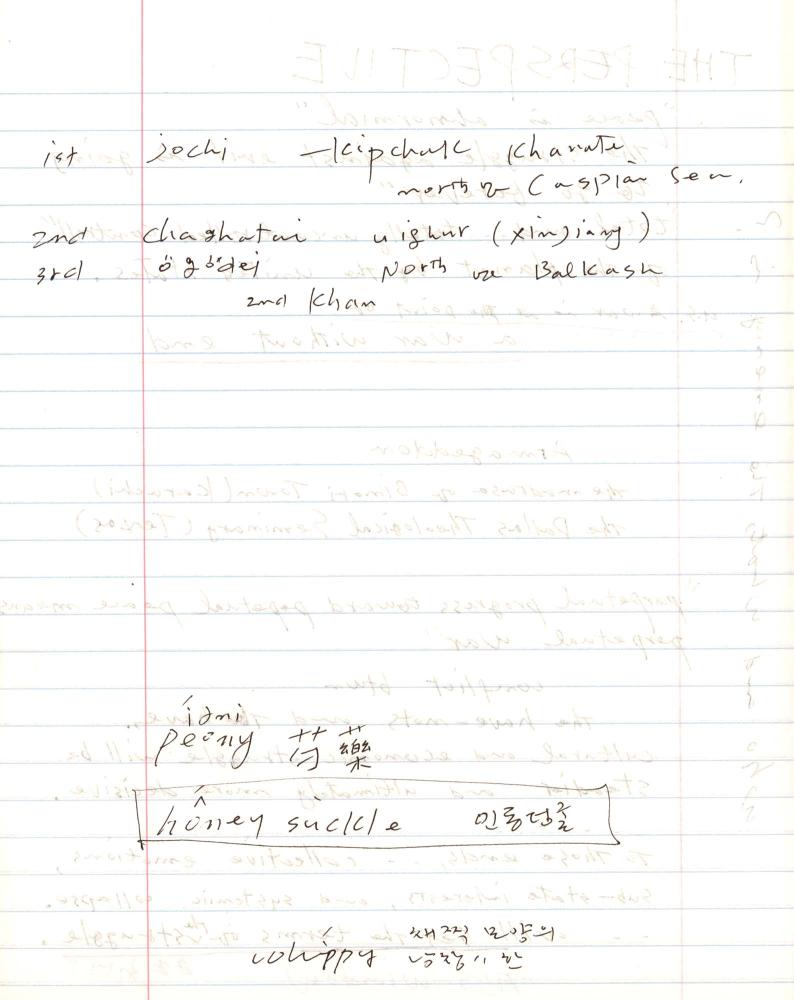 ist jochi – Kipchak Khanate
north of Caspian Sea.
2nd chaghatai uighur (xinjiang)
3rd ögödei North of Balkash
2nd Khan
peony 芍藥
honey suckle 인동덩굴
whippy 채찍 모양의